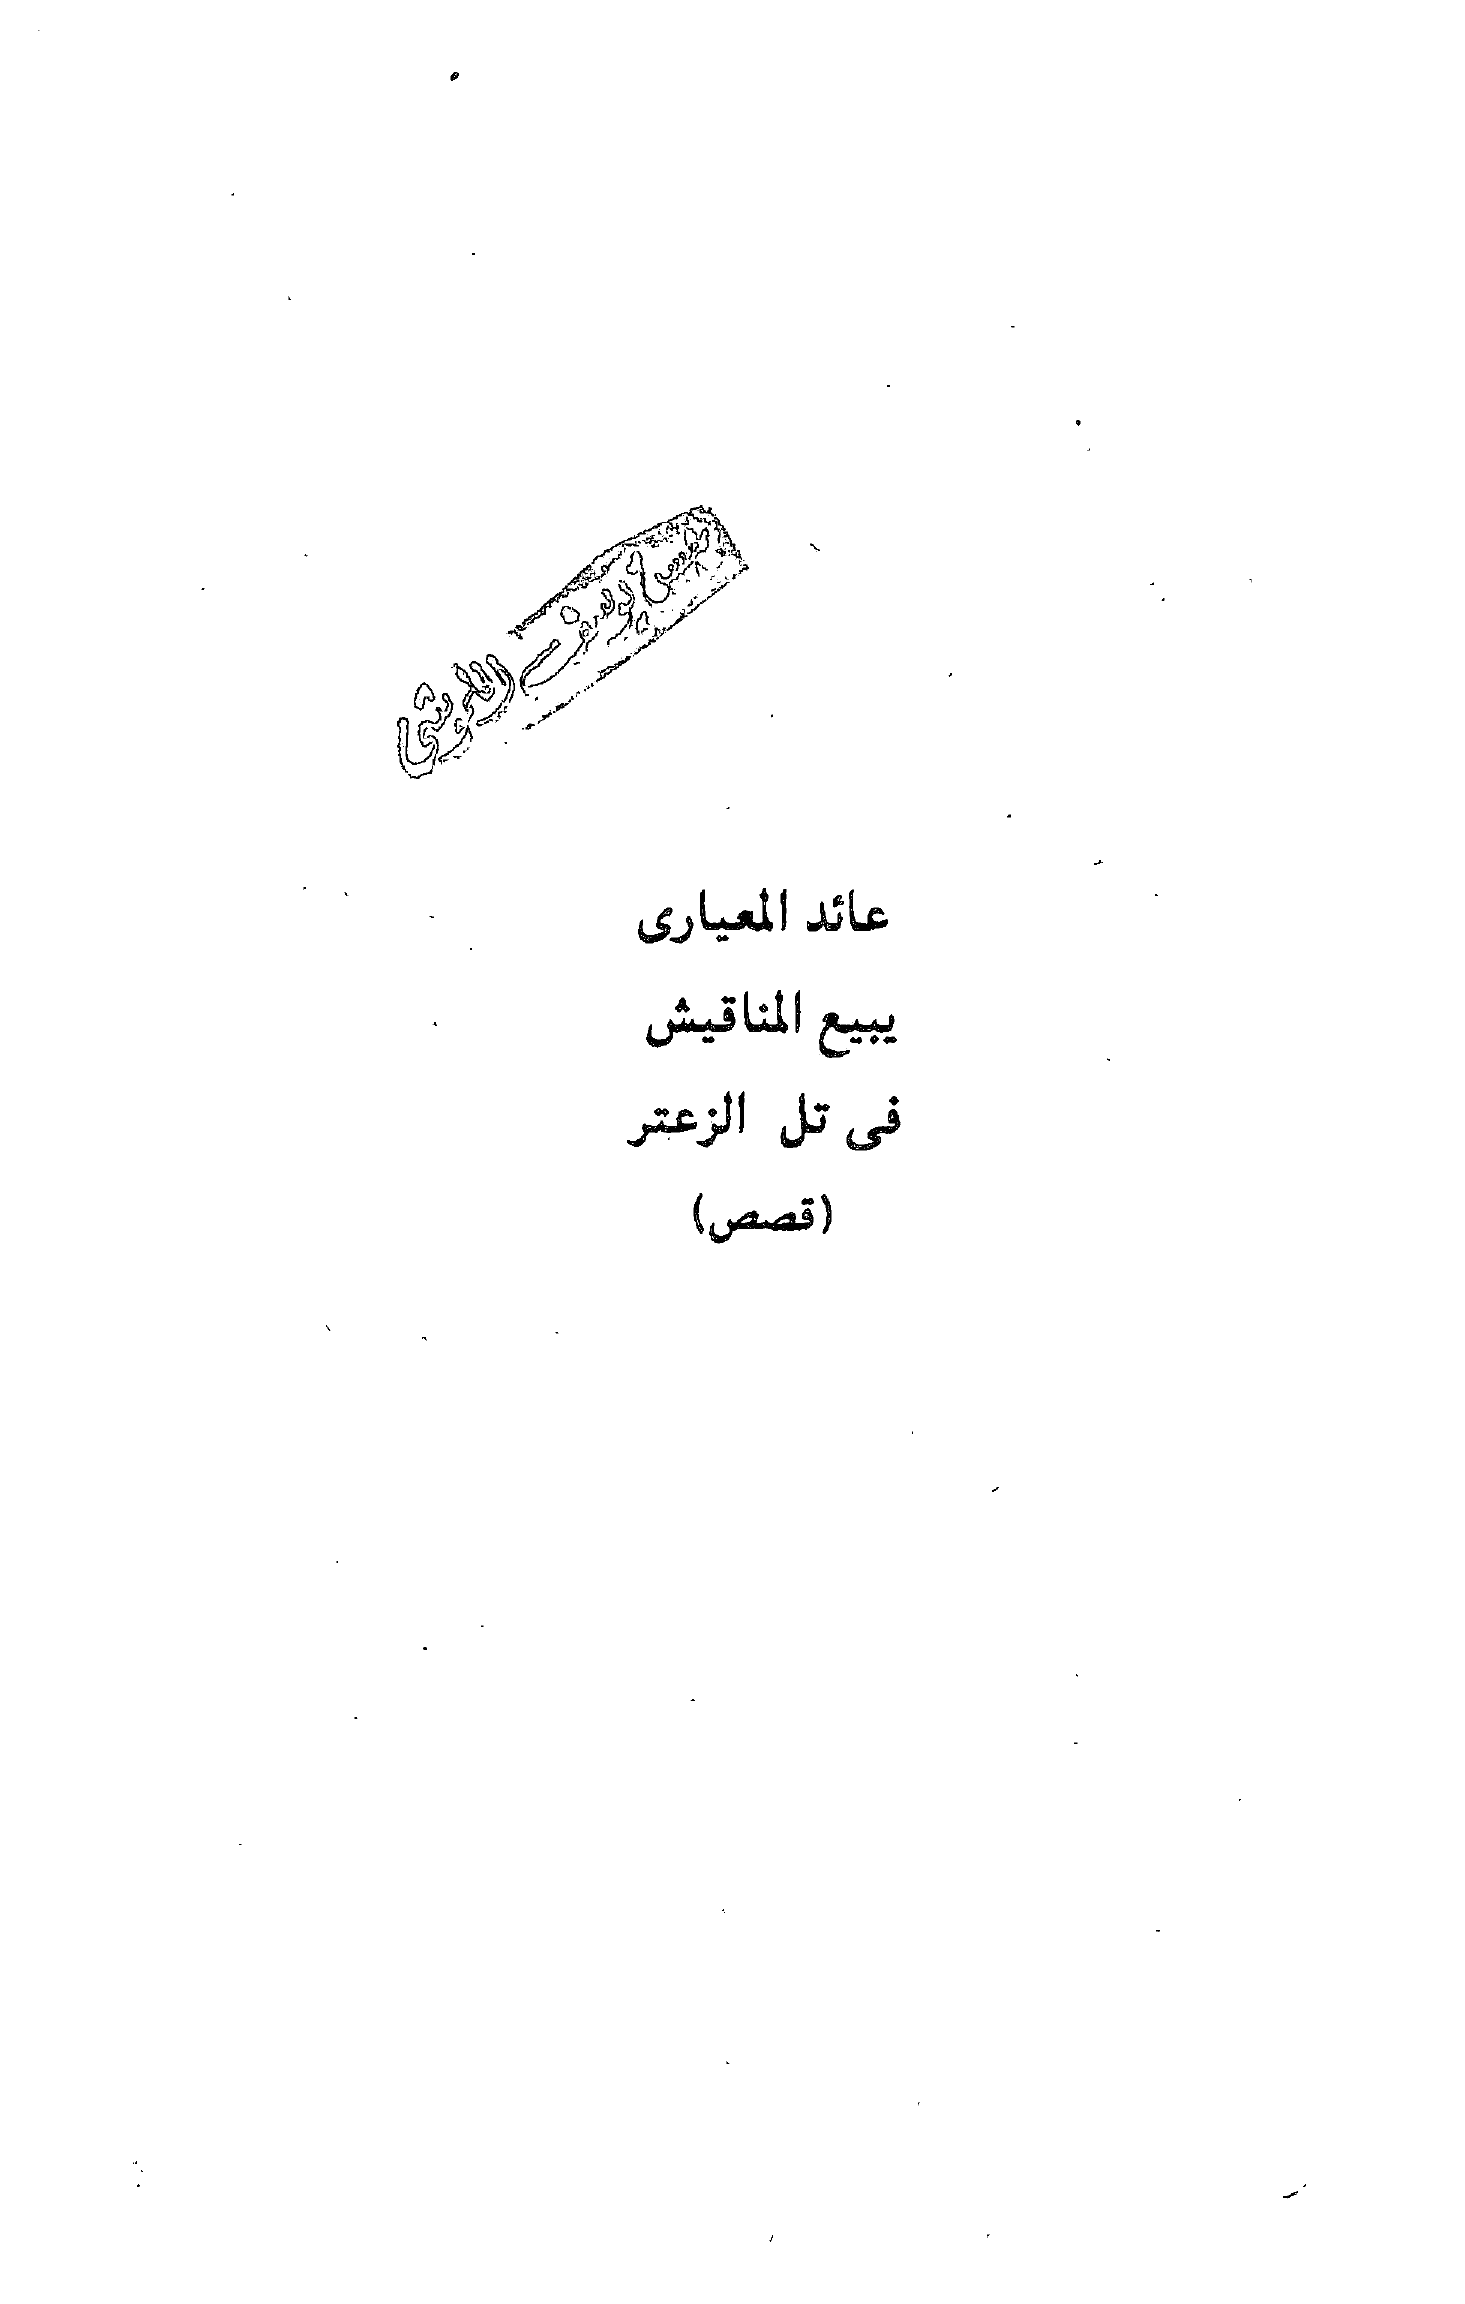 عائد المعيارى
يبيع المناقيش
فى تل الزعتر
(قصص)